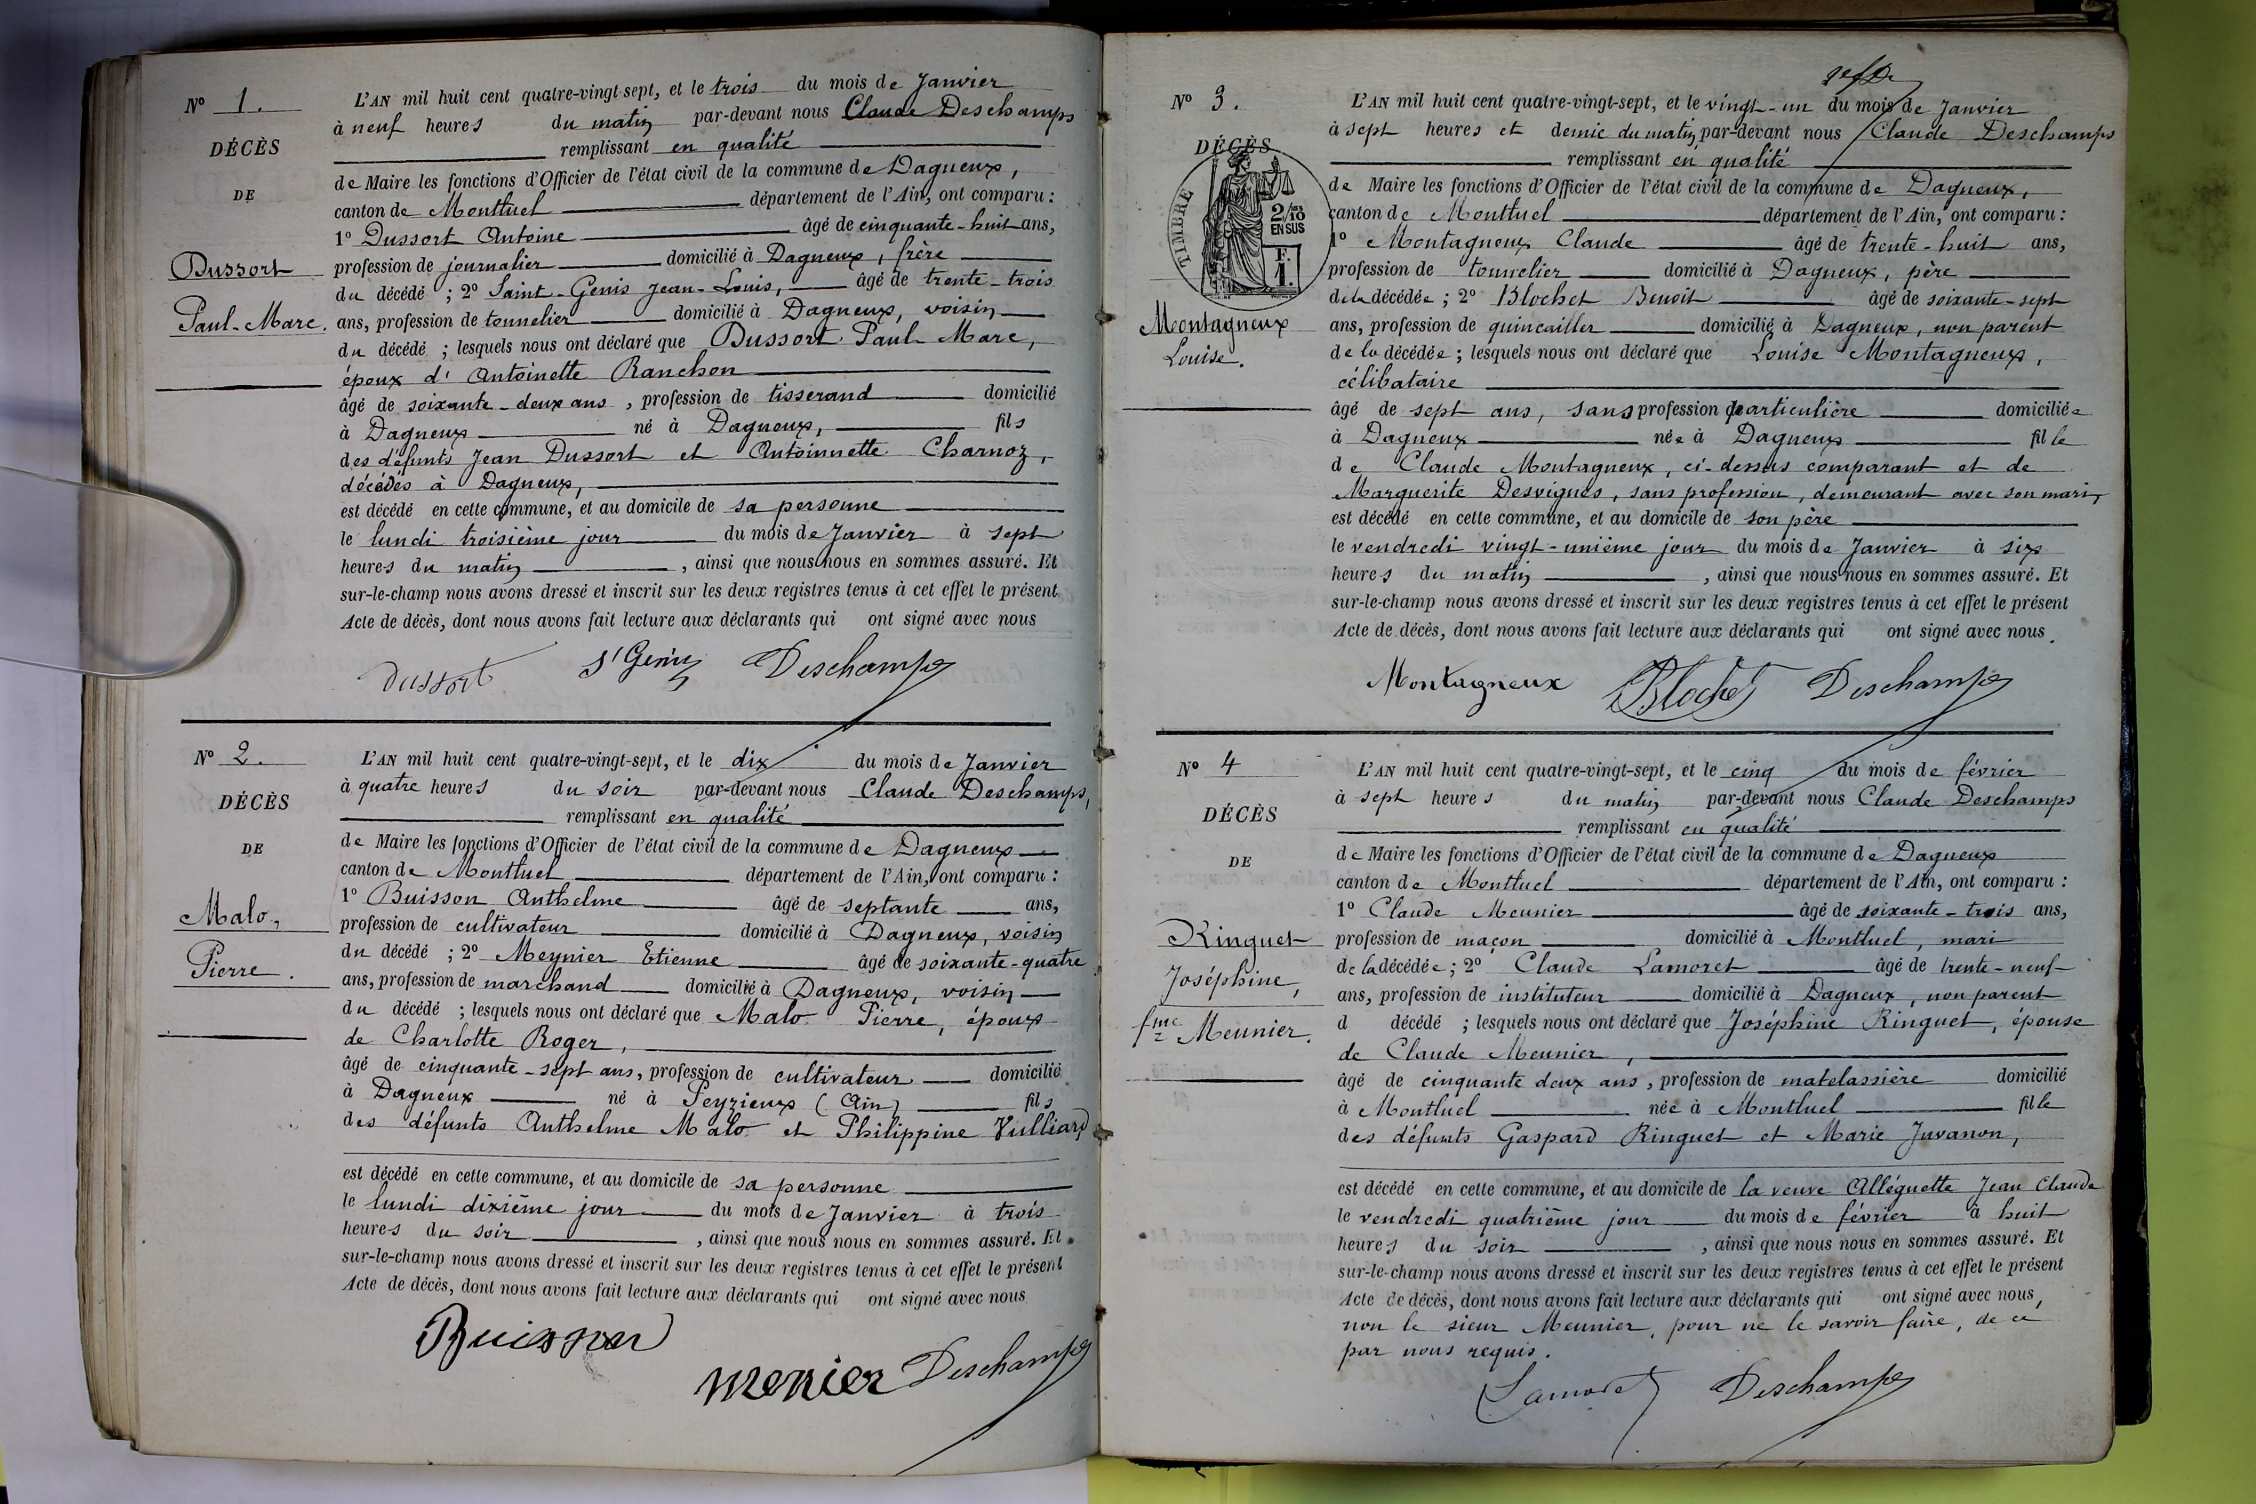 N° 1.
DÉCÈS
DE
Dussort
Paul-Marc.
L'AN mil huit cent quatre-vingt sept, et le trois du mois de Janvier
à neuf heures du matin par-devant nous Claude Deschamps
remplissant en qualité
de Maire les fonctions d'Officier de l'état civil de la commune de Dagneux,
canton de Montluel département de l'Ain, ont comparu :
1° Dussort Antoine âgé de cinquante-huit ans,
profession de journalier domicilié à Dagneux, frère
du décédé ; 2° Saint-Genis Jean-Louis, âgé de trente-trois
ans, profession de tonnelier domicilié à Dagneux, voisin
du décédé ; lesquels nous ont déclaré que Dussort Paul Marc,
époux d' Antoinette Ranchon
âgé de soixante-deux ans, profession de tisserand domicilié
à Dagneux né à Dagneux, fils
des défunts Jean Dussort et Antoinnette Charnoz,
décédés à Dagneux,
est décédé en cette commune, et au domicile de sa personne
le lundi troisième jour du mois de Janvier à sept
heures du matin, ainsi que nous nous en sommes assuré. Et
sur-le-champ nous avons dressé et inscrit sur les deux registres tenus à cet effet le présent
Acte de décès, dont nous avons fait lecture aux déclarants qui ont signé avec nous
Dussort St Genis Deschamps
N° 2.
DÉCÈS
DE
Malo,
Pierre.
L'AN mil huit cent quatre-vingt-sept, et le dix du mois de Janvier
à quatre heures du soir par-devant nous Claude Deschamps,
remplissant en qualité
de Maire les fonctions d'Officier de l'état civil de la commune de Dagneux
canton de Montluel département de l'Ain, ont comparu :
1° Buisson Anthelme âgé de septante ans,
profession de cultivateur domicilié à Dagneux, voisin
du décédé ; 2° Meynier Etienne âgé de soixante-quatre
ans, profession de marchand domicilié à Dagneux, voisin
du décédé ; lesquels nous ont déclaré que Malo Pierre, époux
de Charlotte Roger,
âgé de cinquante-sept ans, profession de cultivateur domicilié
à Dagneux né à Peyzieux (Ain) fils
des défunts Anthelme Malo et Philippine Vulliard
est décédé en cette commune, et au domicile de sa personne
le lundi dixième jour du mois de Janvier à trois
heures du soir, ainsi que nous nous en sommes assuré. Et
sur-le-champ nous avons dressé et inscrit sur les deux registres tenus à cet effet le présent
Acte de décès, dont nous avons fait lecture aux déclarants qui ont signé avec nous
Buisson
menier Deschamps
N° 3.
DÉCÈS
TIMBRE
2/10 EN SUS
F. 1.
Montagneux
Louise.
L'AN mil huit cent quatre-vingt-sept, et le vingt-un du mois de Janvier
à sept heures et demie du matin par-devant nous Claude Deschamps
remplissant en qualité
de Maire les fonctions d'Officier de l'état civil de la commune de Dagneux,
canton de Montluel département de l'Ain, ont comparu :
1° Montagneux Claude âgé de trente-huit ans,
profession de tonnelier domicilié à Dagneux, père
de la décédée ; 2° Blochet Benoit âgé de soixante-sept
ans, profession de quincailler domicilié à Dagneux, non parent
de la décédée ; lesquels nous ont déclaré que Louise Montagneux,
célibataire
âgé de sept ans, sans profession particulière domiciliée
à Dagneux née à Dagneux fille
de Claude Montagneux, ci-dessus comparant et de
Marguerite Desvignes, sans profession, demeurant avec son mari,
est décédé en cette commune, et au domicile de son père
le vendredi vingt-unième jour du mois de Janvier à six
heures du matin, ainsi que nous nous en sommes assuré. Et
sur-le-champ nous avons dressé et inscrit sur les deux registres tenus à cet effet le présent
Acte de décès, dont nous avons fait lecture aux déclarants qui ont signé avec nous.
Montagneux Blochet Deschamps
N° 4
DÉCÈS
DE
Ringuet
Joséphine,
fme Meunier.
L'AN mil huit cent quatre-vingt-sept, et le cinq du mois de février
à sept heures du matin par-devant nous Claude Deschamps
remplissant en qualité
de Maire les fonctions d'Officier de l'état civil de la commune de Dagneux
canton de Montluel département de l'Ain, ont comparu :
1° Claude Meunier âgé de soixante-trois ans,
profession de maçon domicilié à Montluel, mari
de la décédée ; 2° Claude Lamoret âgé de trente-neuf
ans, profession de instituteur domicilié à Dagneux, non parent
d décédé ; lesquels nous ont déclaré que Joséphine Ringuet, épouse
de Claude Meunier,
âgé de cinquante deux ans, profession de matelassière domicilié
à Montluel née à Montluel fille
des défunts Gaspard Ringuet et Marie Juvanon,
est décédé en cette commune, et au domicile de la veuve Alléguette Jean Claude
le vendredi quatrième jour du mois de février à huit
heures du soir, ainsi que nous nous en sommes assuré. Et
sur-le-champ nous avons dressé et inscrit sur les deux registres tenus à cet effet le présent
Acte de décès, dont nous avons fait lecture aux déclarants qui ont signé avec nous,
non le sieur Meunier, pour ne le savoir faire, de ce
par nous requis.
Lamoret Deschamps